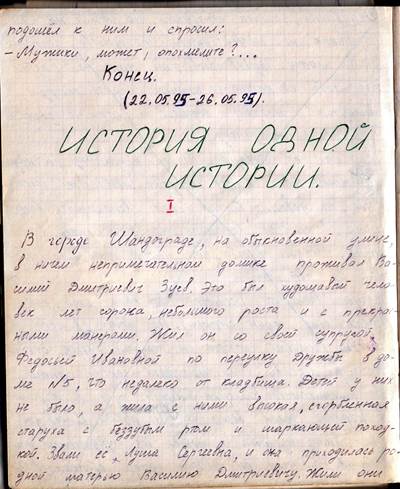 подошёл к ним и спросил:
– Мужики, может, опохмелите?...
Конец.
(22.05.95–26.05.95).
ИСТОРИЯ ОДНОЙ
ИСТОРИИ.
I
В городе Шандограде, на обыкновенной улице,
в ничем непримечательном домике проживал Ва-
силий Дмитриевич Зуев. Это был худощавый чело-
век лет сорока, небольшого роста и с прекрас-
ными манерами. Жил он со своей супругой
Федосьей Ивановной по переулку Дружбы в до-
ме №5, что недалеко от кладбища. Детей у них
не было, а жила с ними высокая, сгорбленная
старуха с беззубым ртом и шаркающей поход-
кой. Звали её Луша Сергеевна, и она приходилась ро-
дной матерью Василию Дмитриевичу. Жили они